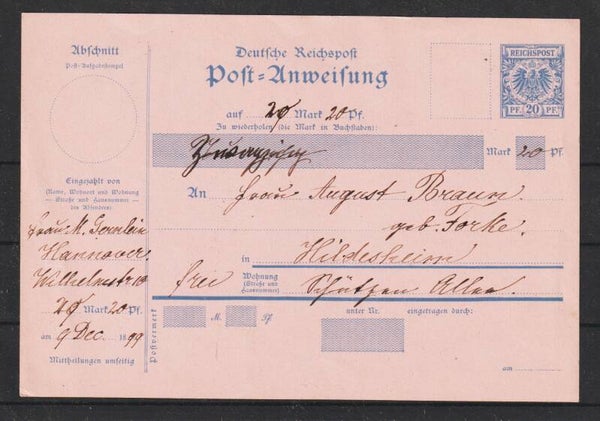 Abschnitt
Post-Aufgabestempel
Eingezahlt von
(Name, Wohnort und Wohnung
— Straße und Hausnummer —
des Absenders)
Frau M.
Hannover.
Wilhelmstr 10
20 Mark 20 Pf.
am 9 Dec. 1899
Mittheilungen umseitig
Postvermerk
Deutsche Reichspost
Post-Anweisung
REICHSPOST
PF. 20 PF.
auf 20 Mark 20 Pf.
Zu wiederholen (die Mark in Buchstaben):
Zwanzig Mark 20 Pf.
An Frau August Braun
geb. Forke.
in Hildesheim
frei Wohnung
(Straße und
Hausnummer)
Schützen Allee.
M. Pf
unter Nr. eingetragen durch:
am